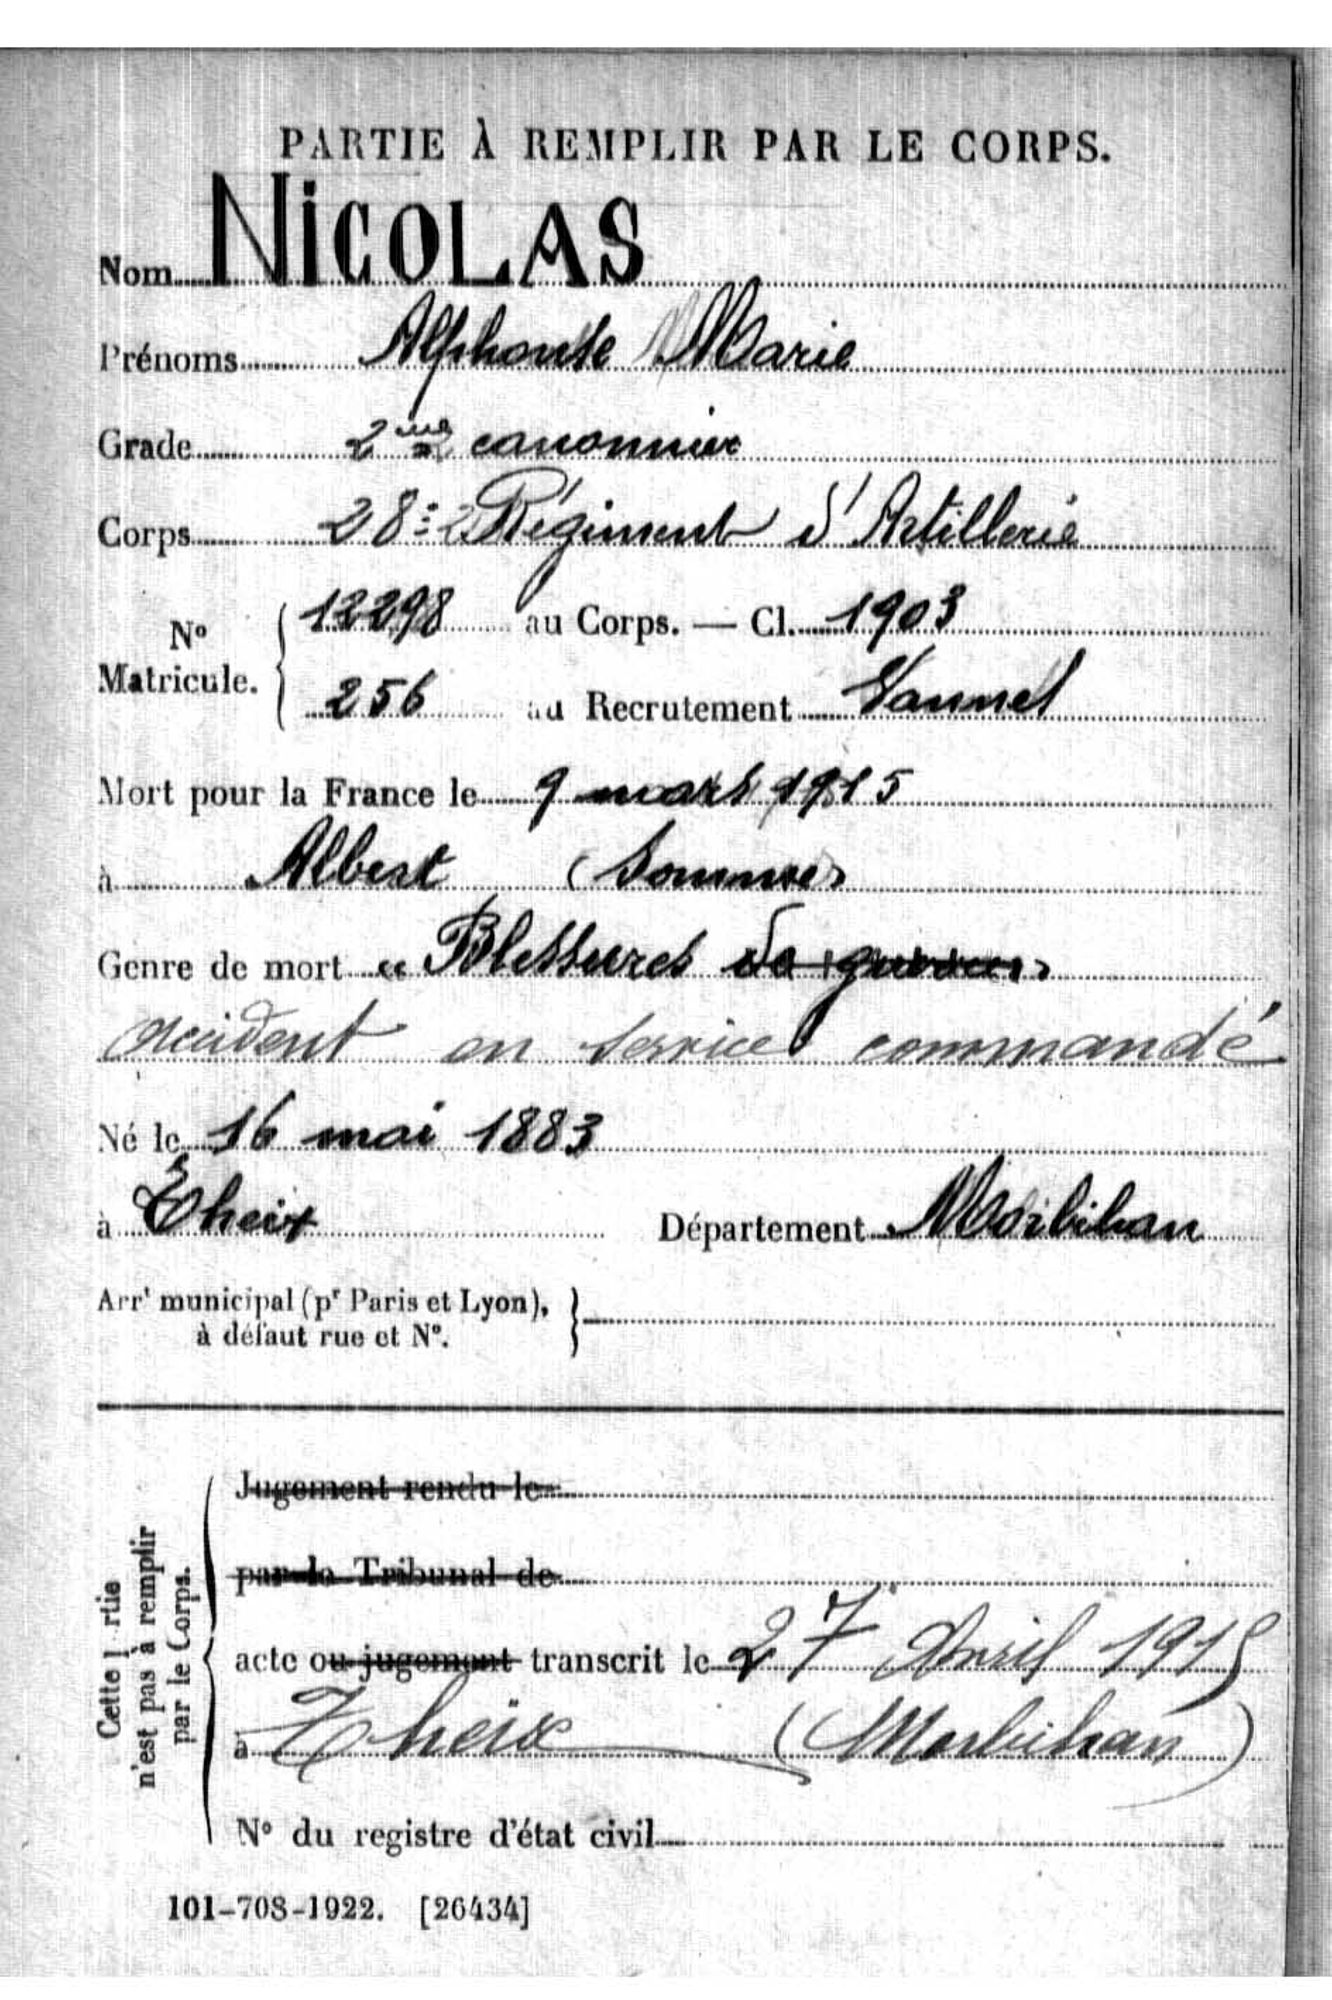 PARTIE À REMPLIR PAR LE CORPS.
Nom NiCOLAS
Prénoms Alphonse Marie
Grade 2me canonnier
Corps 28e Régiment d'Artillerie
No Matricule. 12298 au Corps. — Cl. 1903
256 au Recrutement Vannes
Mort pour la France le 9 mars 1915
à Albert (Somme)
Genre de mort « Blessures de guerre »
accident en service commandé
Né le 16 mai 1883
à Theix Département Morbihan
Arrt municipal (pr Paris et Lyon), à défaut rue et No.
Jugement rendu le
par le Tribunal de
acte ou jugement transcrit le 27 Avril 1915
à Theix (Morbihan)
No du registre d'état civil
Cette partie n'est pas à remplir par le Corps.
101-708-1922. [26434]